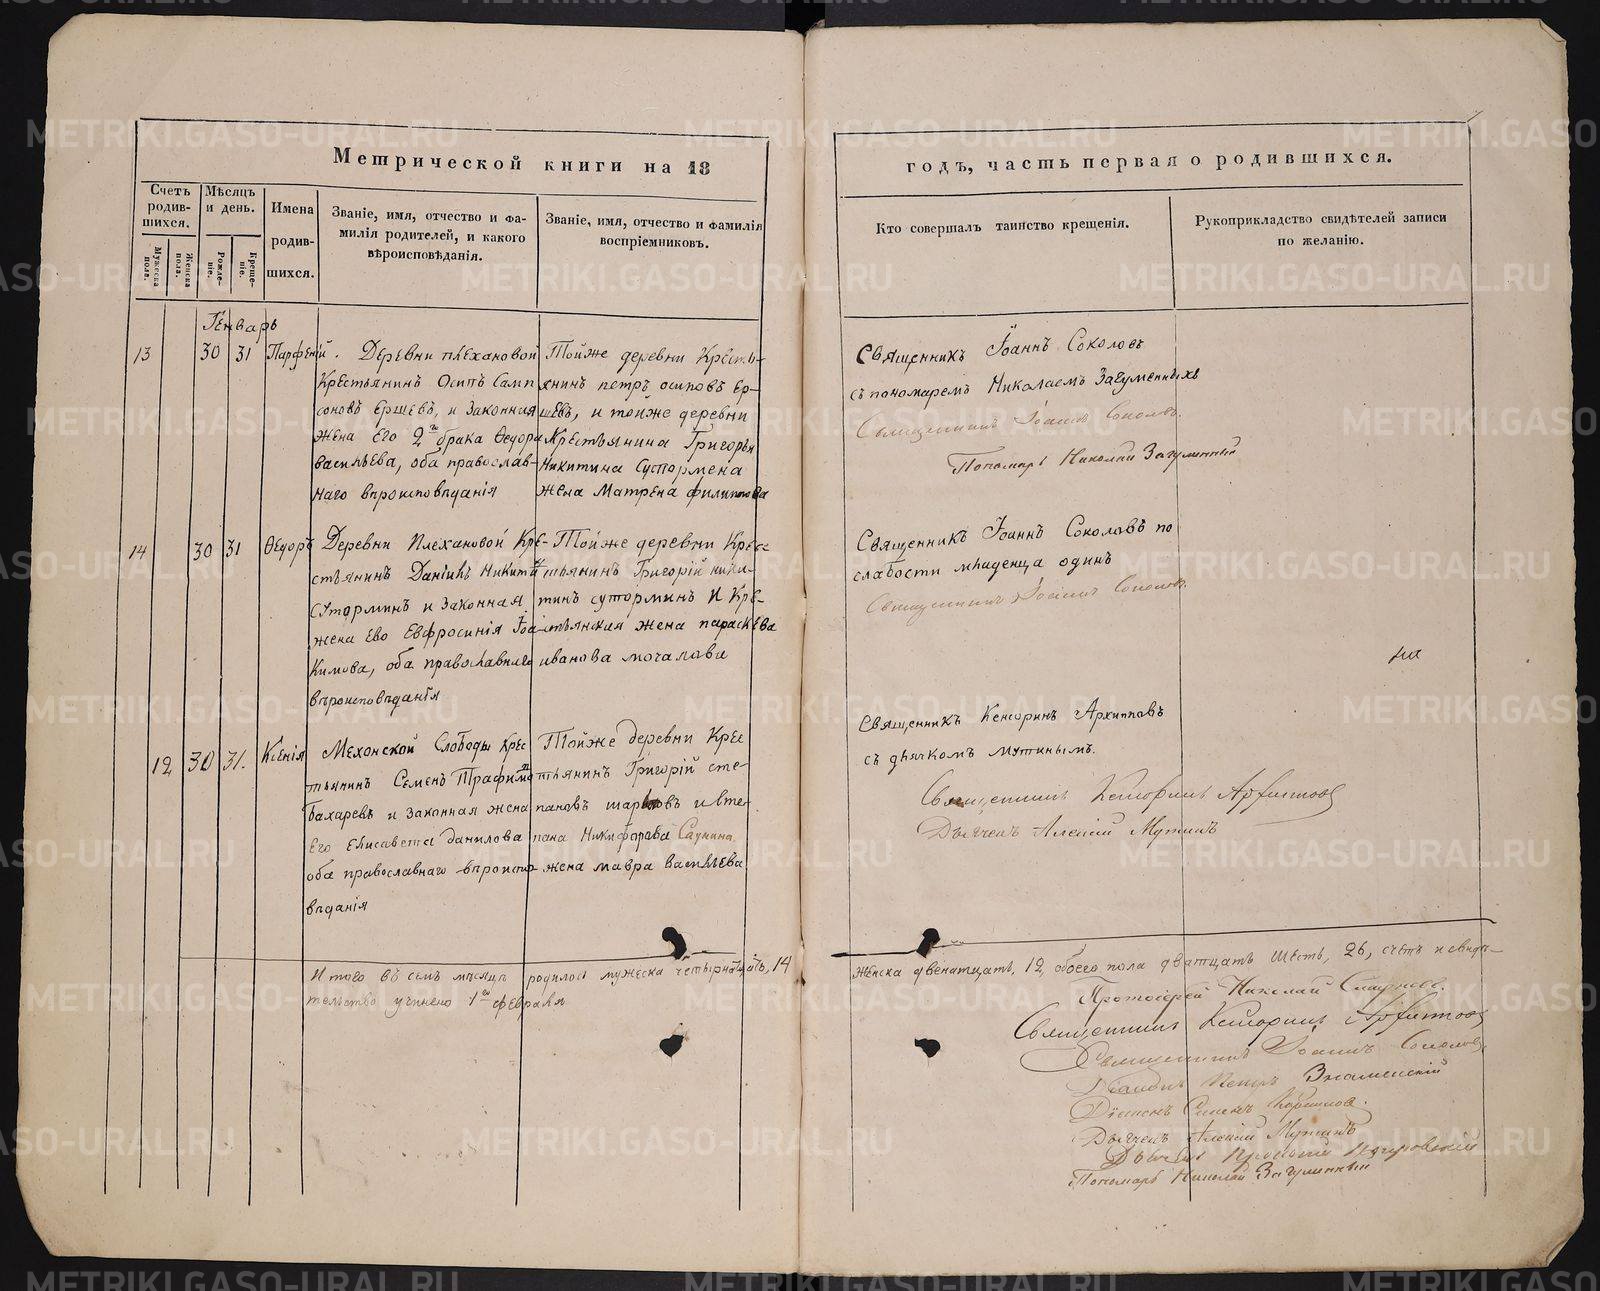 Метрической книги на 18
годъ, часть первая о родившихся.
Счетъ родив-шихся.
Мужеска пола.
Женска пола.
Мѣсяцъ и день.
Рожде-ніе.
Креще-ніе.
Имена родив-шихся.
Званіе, имя, отчество и фа-
милія родителей, и какого
вѣроисповѣданія.
Званіе, имя, отчество и фамилія
воспріемниковъ.
Кто совершалъ таинство крещенія.
Рукоприкладство свидѣтелей записи
по желанію.
Генварь
13 30 31 Парфеній.
Деревни плехановой
Крестьянинъ Осипъ Самп
соновъ Ершевъ, и Законная
жена Его 2го брака Ѳедора
васильева, оба православ-
наго вѣроисповѣданія
Тойже деревни Кресть-
янинъ петръ осиповъ Ер-
шевъ, и тойже деревни
Крестьянина Григорья
Никитина Сутормена
жена Матрена филиппова
Священникъ Іоаннъ Соколовъ
съ пономаремъ Николаемъ Загуменныхъ
Священникъ Іоаннъ Соколовъ.
Пономарь Николай Загуменный
14 30 31 Ѳедоръ
Деревни Плехановой Кре-
стьянинъ Даніилъ Никитинъ
Сутарминъ и Законная
жена Ево Евфросинія Іоа-
кимова, оба православнаго
вѣроисповѣданія
Тойже деревни Крес
стьянинъ Григорій ники-
тинъ суторминъ и Кре-
стьянская жена параскева
иванова мочалова
Священникъ Іоаннъ Соколовъ по
слабости младенца одинъ
Священникъ Іоаннъ Соколовъ.
12 30 31. Ксенія
Мехонской Слободы Крес
тьянинъ Семенъ Трафимовъ
Бахаревъ и законная жена
Его Елисавета данилова
оба православнаго вѣроиспо-
вѣданія
Тойже деревни Крес
тьянинъ Григорій сте
пановъ и сте-
пана Никифорова Саунина
жена мавра Васильева
Священникъ Кенсоринъ Архиповъ
съ дьячкомъ Мутинымъ.
Священникъ Кенсоринъ Архиповъ
Дьячекъ Алексій Мутинъ
Итого въ семъ мѣсяцѣ родилось мужеска четырнатцать, 14
женска двенатцать, 12, обоего пола дватцать шесть, 26, счетъ и свидѣ-
тельство учинено 1го февраля
Протоіерей Николай Смирновъ.
Священникъ Кенсоринъ Архиповъ
Священникъ Іоаннъ Соколовъ
Діаконъ Петръ Знаменскій
Діаконъ Симеонъ
Дьячекъ Алексій Мутинъ
Дьячекъ
Пономарь Николай Загуменный
METRIKI.GASO-URAL.RU